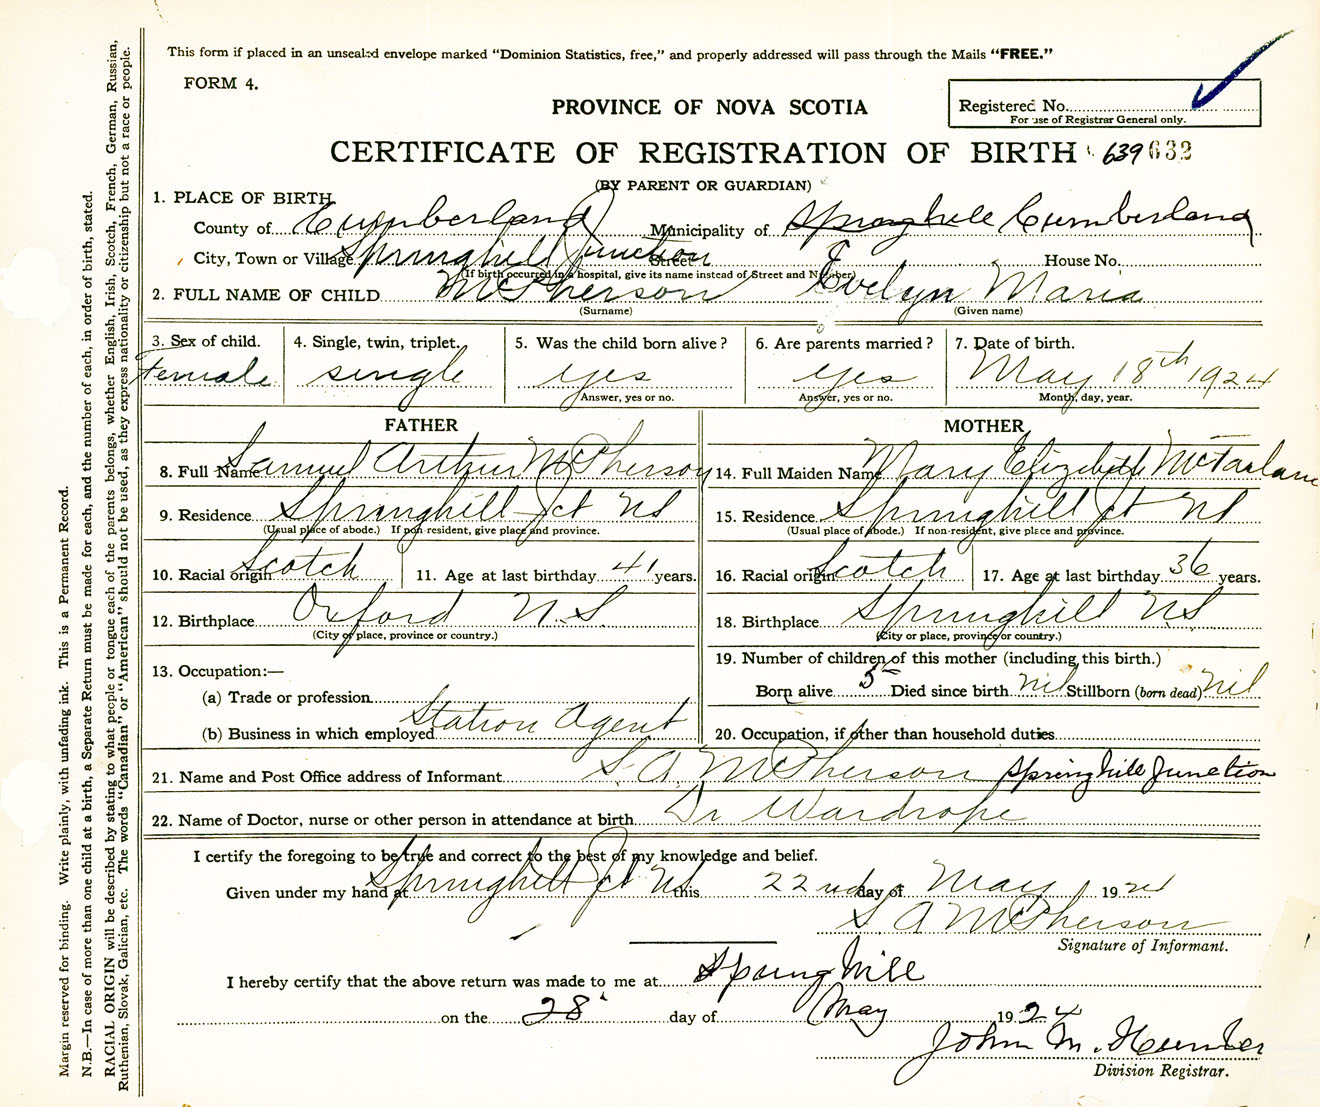 This form if placed in an unsealed envelope marked “Dominion Statistics, free,” and properly addressed will pass through the Mails “FREE.”
FORM 4.
PROVINCE OF NOVA SCOTIA
Registered No.
For use of Registrar General only.
CERTIFICATE OF REGISTRATION OF BIRTH 639 632
(BY PARENT OR GUARDIAN)
1. PLACE OF BIRTH
County of Cumberland Municipality of Springhill Cumberland
City, Town or Village Springhill Junction Street House No.
(If birth occurred in a hospital, give its name instead of Street and Number)
2. FULL NAME OF CHILD McPherson Evelyn Maria
(Surname) (Given name)
3. Sex of child. 4. Single, twin, triplet. 5. Was the child born alive? 6. Are parents married? 7. Date of birth.
Female single yes yes May 18th 1924
Answer, yes or no. Answer, yes or no. Month, day, year.
FATHER MOTHER
8. Full Name Samuel Arthur McPherson 14. Full Maiden Name Mary Elizabeth McFarlane
9. Residence Springhill Jct NS 15. Residence Springhill Jct NS
(Usual place of abode.) If non resident, give place and province. (Usual place of abode.) If non-resident, give place and province.
10. Racial origin Scotch 11. Age at last birthday 41 years. 16. Racial origin Scotch 17. Age at last birthday 36 years.
12. Birthplace Oxford N.S. 18. Birthplace Springhill NS
(City or place, province or country.) (City or place, province or country.)
13. Occupation:— 19. Number of children of this mother (including this birth.)
(a) Trade or profession Born alive 5 Died since birth nil Stillborn (born dead) nil
(b) Business in which employed Station Agent 20. Occupation, if other than household duties
21. Name and Post Office address of Informant S. A. McPherson Springhill Junction
22. Name of Doctor, nurse or other person in attendance at birth Dr Wardrope
I certify the foregoing to be true and correct to the best of my knowledge and belief.
Given under my hand at Springhill Jct NS this 22nd day of May 1924
S. A McPherson
Signature of Informant.
I hereby certify that the above return was made to me at Springhill
on the 28 day of May 1924
John M. Hunter
Division Registrar.
Margin reserved for binding. Write plainly, with unfading ink. This is a Permanent Record.
N.B.—In case of more than one child at a birth, a Separate Return must be made for each, and the number of each, in order of birth, stated.
RACIAL ORIGIN will be described by stating to what people or tongue each of the parents belongs, whether English, Irish, Scotch, French, German, Russian,
Ruthenian, Slovak, Galician, etc. The words “Canadian” or “American” should not be used, as they express nationality or citizenship but not a race or people.